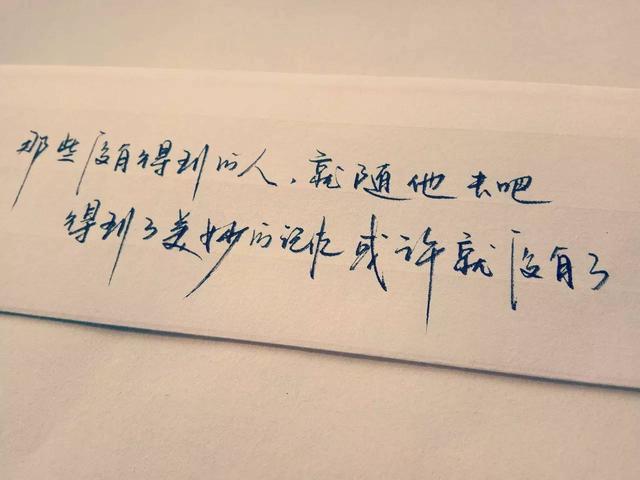 那些没有得到的人、就随他去吧
得到了美妙的记忆或许就没有了